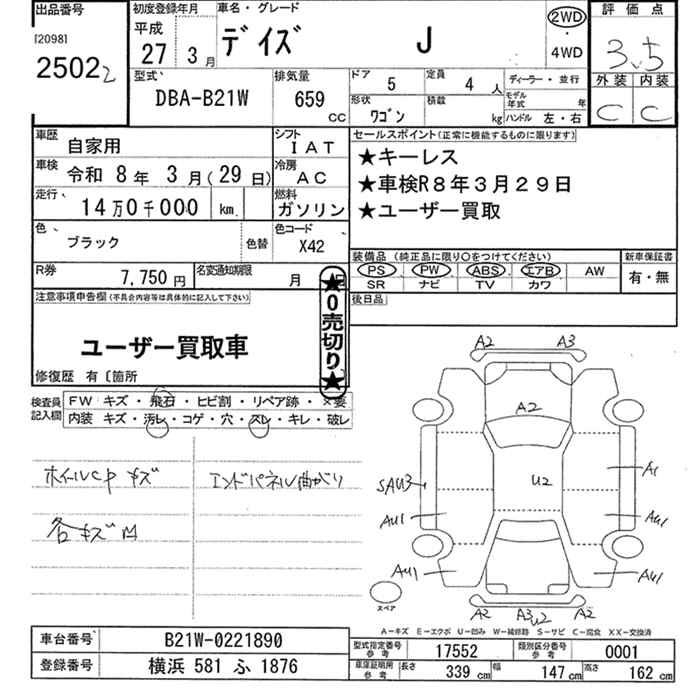 出品番号
[2098]
2502 2
初度登録年月
平成
27 3月
車名・グレード
デイズ J
2WD
・
4WD
評価点
3.5
外装 内装
C C
型式
DBA-B21W
排気量
659 CC
ドア 5
定員 4人
形状 ワゴン
積載 kg
ディーラー・並行
モデル年式 年
ハンドル 左・右
車歴 自家用
シフト IAT
車検 令和 8年 3月(29日)
冷房 AC
走行 14万0千000 km
燃料 ガソリン
色 ブラック 色替
色コード X42
R券 7,750円
名変通知期限 月 日
セールスポイント(正常に機能するものに限ります)
★キーレス
★車検R8年3月29日
★ユーザー買取
装備品(純正品に限り〇をつけてください)
PS PW ABS エアB AW
SR ナビ TV カワ
新車保証書
有・無
後日品
★0売切り★
注意事項申告欄(不具合内容等は具体的に記入して下さい)
ユーザー買取車
修復歴 有〔箇所
検査員記入欄
FW キズ・飛石・ヒビ割・リペア跡・×要
内装 キズ・汚レ・コゲ・穴・スレ・キレ・破レ
ホイールCP キズ
エンドパネル曲がり
各キズ凹
A2 A3
A2
U2
SAU3
A1
AU1
AU1
AU1
AU1
スペア
A2 A3 U2 A2
A−キズ E−エクボ U−凹み W−補修跡 S−サビ C−腐食 XX−交換済
車台番号 B21W-0221890
登録番号 横浜 581 ふ 1876
型式指定番号 参考 17552
類別区分番号 参考 0001
車庫証明用 参考 長さ 339cm 幅 147cm 高さ 162cm